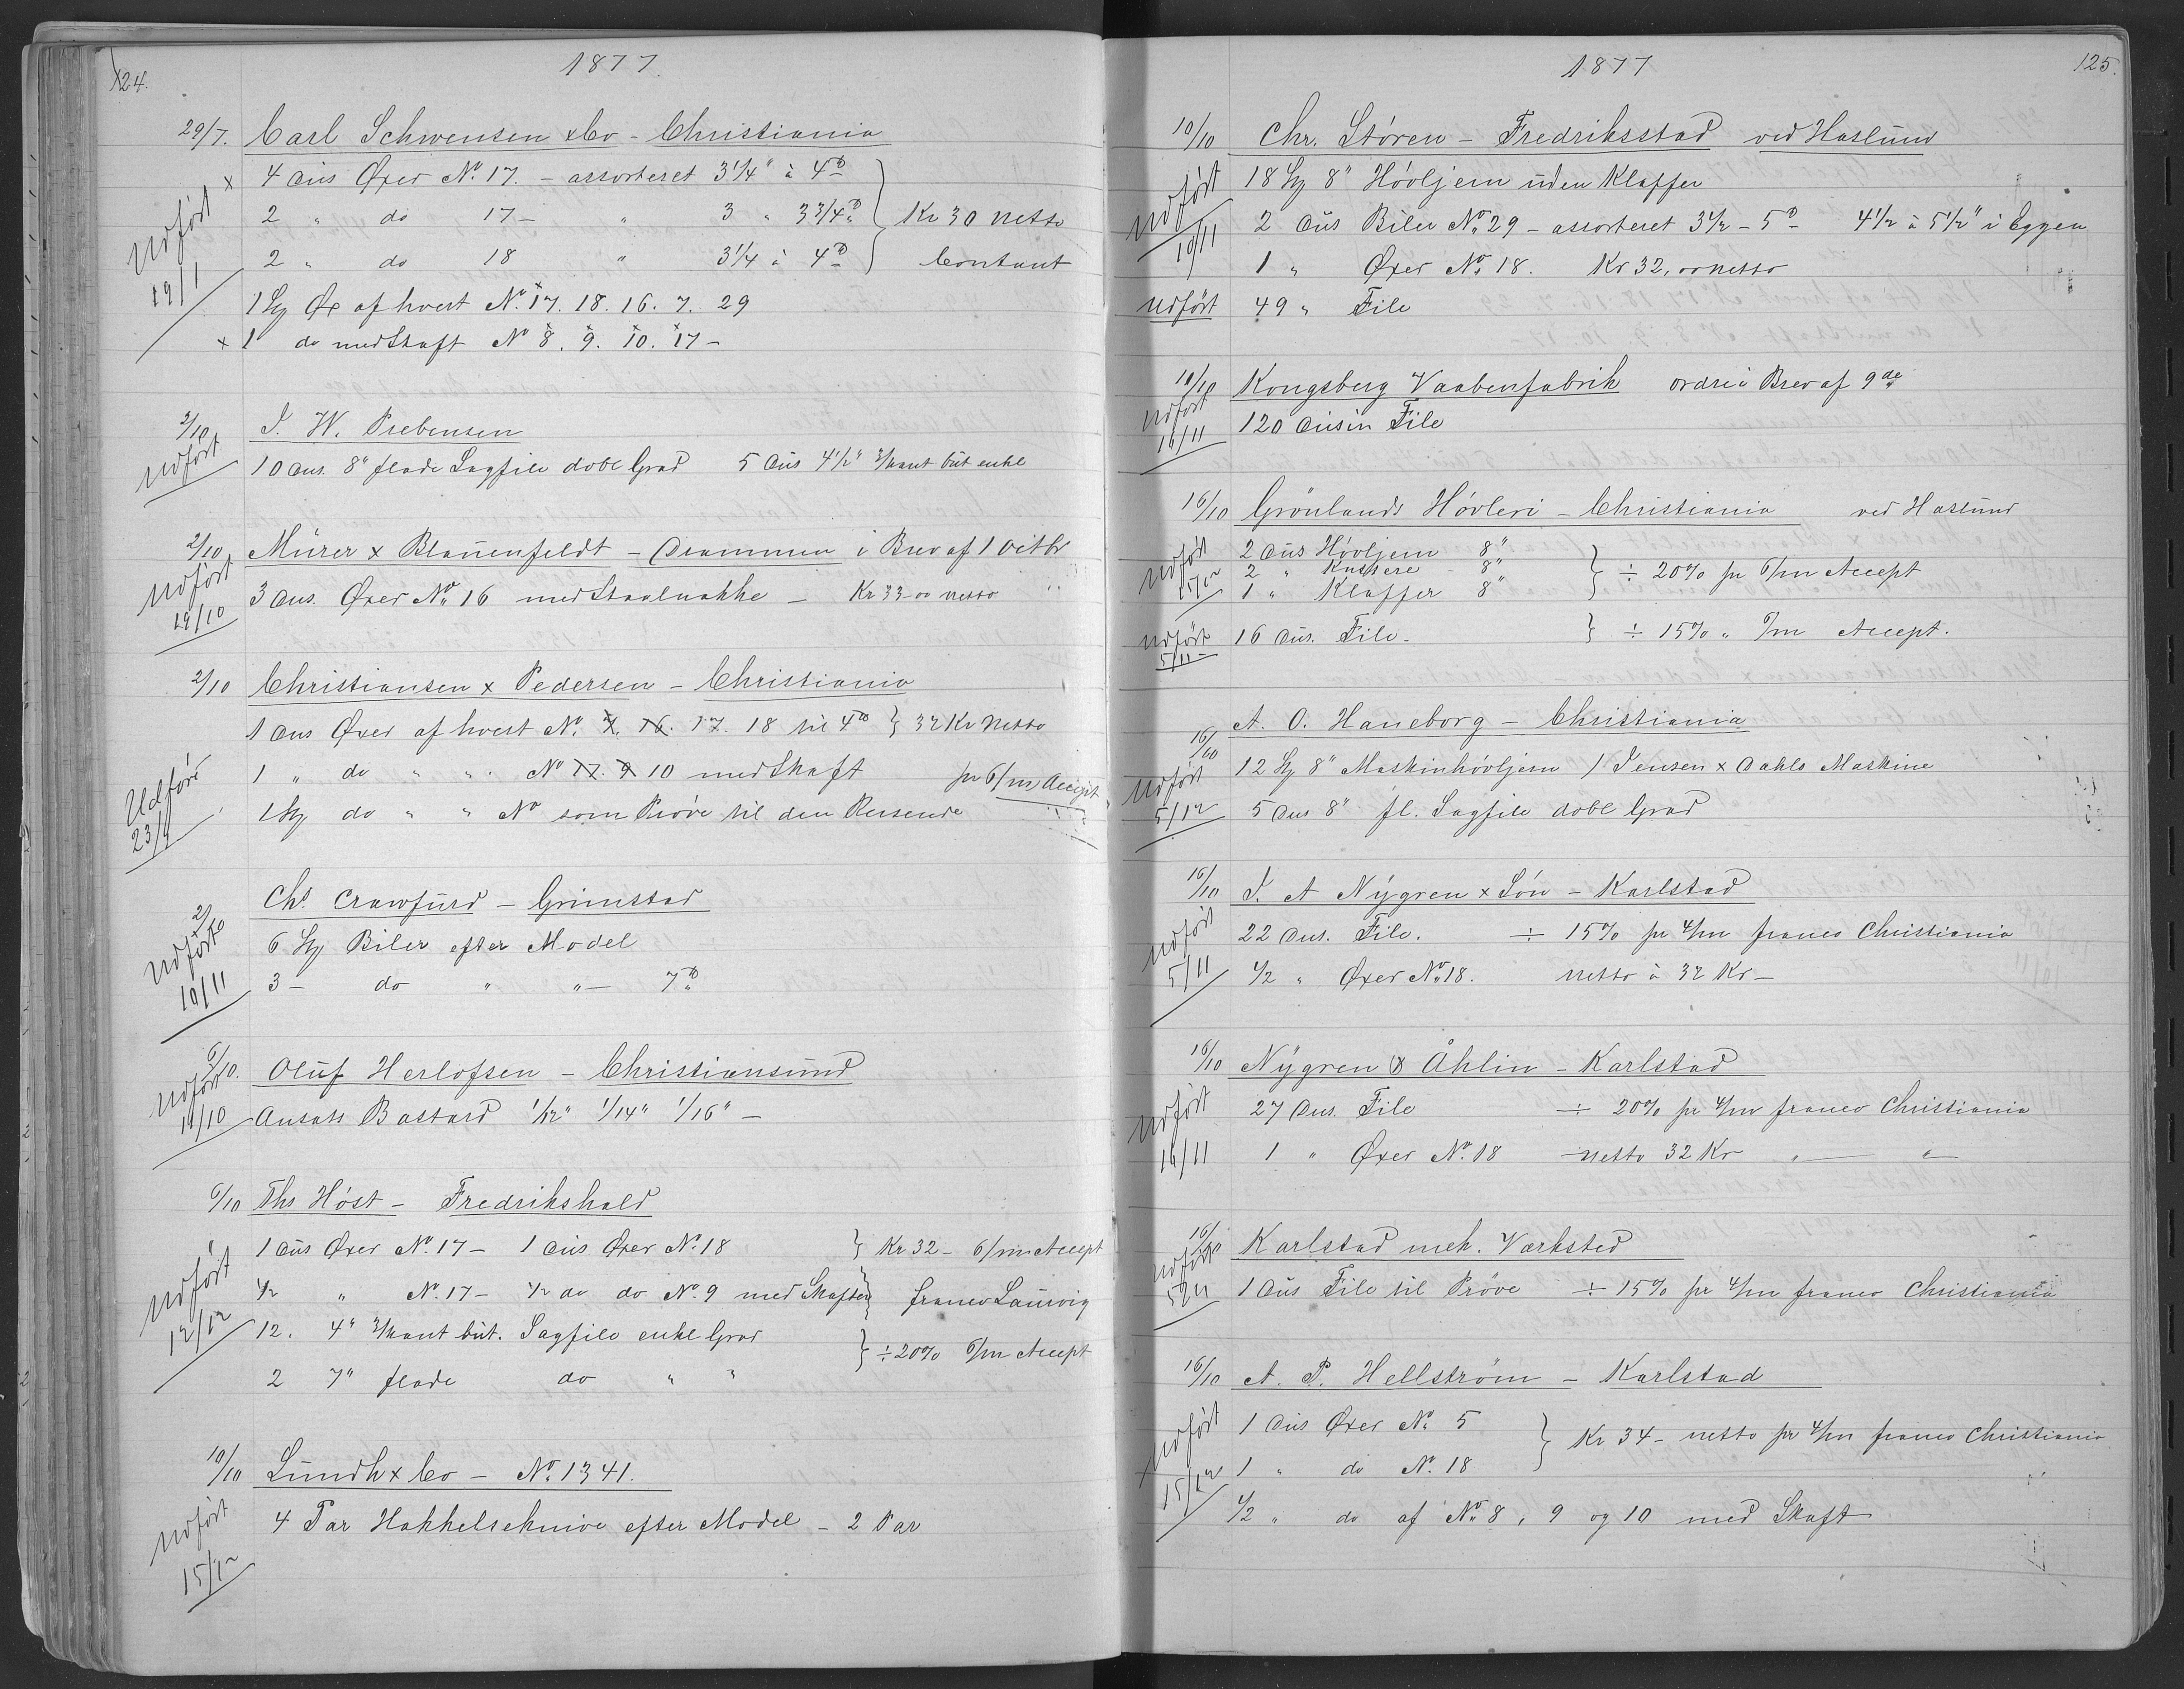 124.
1877.
29/7. Carl Schwensen & Co - Christiania
x 4 Dus Øxer No. 17. - assorteret 3 1/4" à 4 ℔
2 " do 17 - " 3 " 3 3/4 ℔ } Kr 30 netto
2 " do 18 " 3 1/4 à 4 ℔ } Contant
Udført 19/1
1 Stk Øx af hvert No. 17. 18. 16. 7. 29
x 1 do med Skaft No 8. 9. 10. 17 -
2/10 J. W. Prebensen
Udført
10 Dus. 8" flade Sagfile dobl Grad 5 Dus 4 1/2" 3/kant but enkl
2/10 Mürer x Blauenfeldt - Drammen i Brev af 1 Octbr
Udført 19/10
3 Dus. Øxer No. 16 med Staalnakke - Kr 33 00 netto
2/10 Christiansen x Pedersen - Christiania
1 Dus Øxer af hvert No. 7. 16. 17. 18 til 4 ℔ } 32 Kr Netto
1 " do " " No 17. 9 10 med Skaft pr 6/m Accept
Udført 23/1
1 Stk do " " No som Prøve til den Reisende
Chs Crawfurd - Grimstad
2/10 6 Stk Biler efter Model
Udført 10/11
3 - do " " - 7 ℔
6/10. Oluf Herlofsen - Christiansund
Udført 19/10
Ansats Bastard 1/12" 1/14" 1/16" -
6/10 Ths Høst - Fredrikshald
1 Dus Øxer No. 17 - 1 Dus Øxer No. 18 } Kr 32 - 6/m Accept
1/2 " No. 17 - 1/2 do do No. 9 med Skafter } franco Laurvig
Udført 12/12
12. 4" 3/kant but. Sagfile enkl Grad
2 7" flade do " " } ÷ 20% 6/m Accept
10/10 Lundh x Co - No. 1341.
Udført 15/12
4 Par Hakkelseknive efter Model - 2 Par
1877
125.
10/10 Chr. Støren - Fredriksstad ved Haslund
18 Stk 8" Høvljern uden Klapper
Udført 10/11
2 Dus Biler No. 29 - assorteret 3 1/2 - 5 ℔ - 4 1/2 à 5 1/2" i Eggen
1 " Øxer No. 18. Kr 32, 00 netto
Udført 49 " File
10/10 Kongsberg Vaabenfabrik ordre i Brev af 9 de
Udført 16/11
120 Dusin File
16/10 Grönlands Høvleri - Christiania ved Haslund
2 Dus Høvljern 8"
2 " Kuttere - 8" } ÷ 20% pr 6/m Accept
Udført 15/12
1 " Klapper 8"
Udført 5/11 -
16 Dus. File - } ÷ 15% " /m Accept.
A. O. Haneborg - Christiania
16/10 12 Stk 8" Maskinhøvljern / Jensen x Dahls Maskine
Udført 5/12
5 Dus 8" fl. Sagfile dobl Grad
16/10 J. A Nygren x Søn - Karlstad
22 Dus. File. ÷ 15% pr 4/m franco Christiania
Udført 5/11
1/2 " Øxer No. 18. netto à 32 Kr -
16/10 Nygren & Åhlin - Karlstad
27 Dus. File ÷ 20% pr 4/m franco Christiania
Udført 16/11
1 " Øxer No. 18 netto 32 Kr " — " —
16/10 Karlstad mek. Værksted
Udført
1 Dus File til Prøve ÷ 15% pr 4/m franco Christiania
16/10 A. P. Hellström - Karlstad
1 Dus Øxer No. 5
1 " do No. 18 } Kr 34 - netto pr 4/m franco Christiania
Udført 15/12
1/2 " do af No. 8, 9 og 10 med Skaft